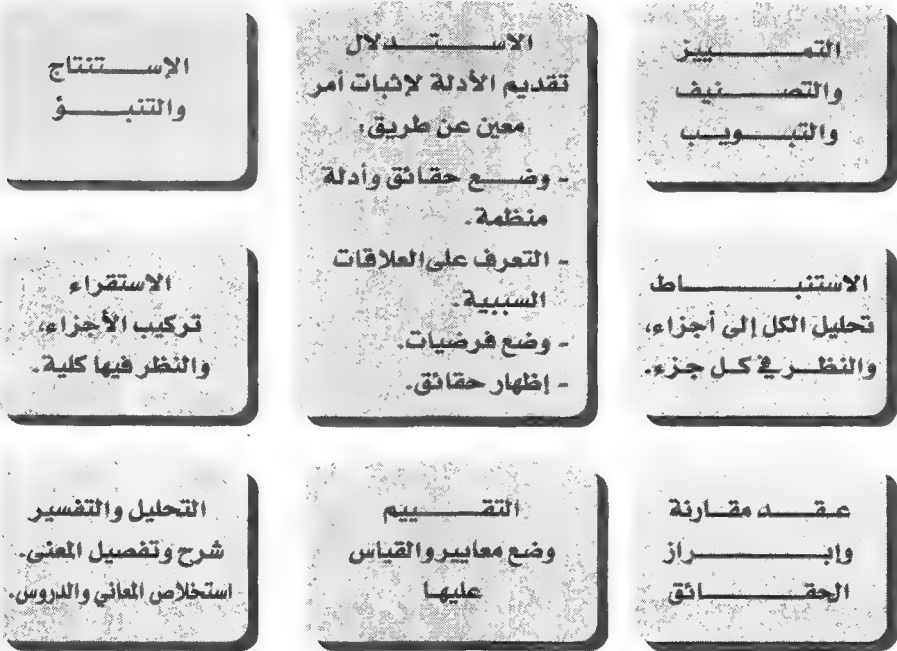 التمـــييز
والتصـــنيف
والتبـــويب
الاســـتـــدلال
تقديم الأدلة لإثبات أمر
معين عن طريق:
- وضـــع حقائق وأدلة
منظمة.
- التعرف على العلاقات
السببية.
- وضع فرضيات.
- إظهار حقائق.
الإســـتنتاج
والتنبـــؤ
الاستنبـــاط
تحليل الكل إلى أجزاء،
والنظـــر في كـل جـزء.
الاستقراء
تركيب الأجزاء،
والنظر فيها كلية.
عـقـــد مقـارنة
وإبـــراز
الحقـــائق
التقـــييم
وضع معايير والقياس
عليهـا
التحليل والتفسير
شرح وتفصيل المعنى.
استخلاص المعاني والدروس.